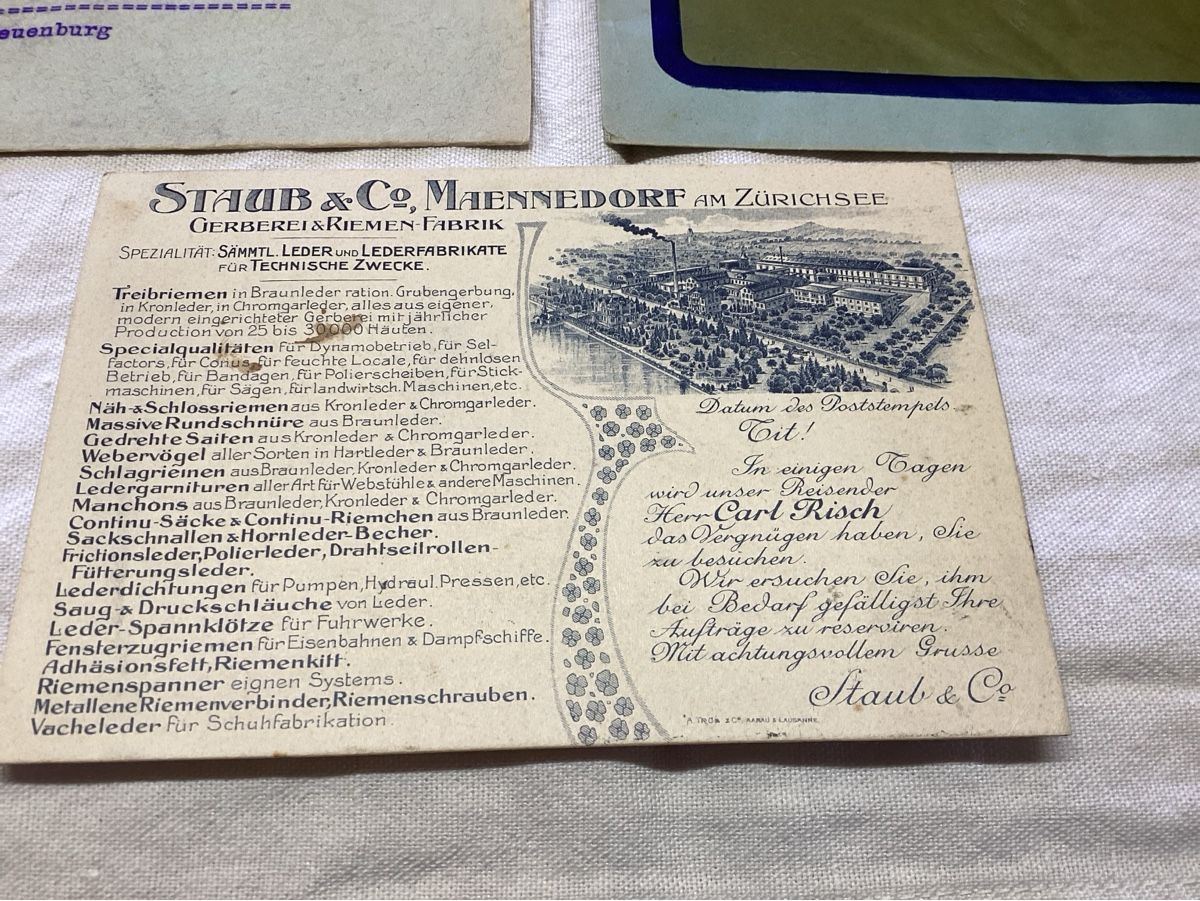 euenburg
STAUB & Co, MAENNEDORF AM ZÜRICHSEE
GERBEREI & RIEMEN-FABRIK
SPEZIALITÄT: SÄMMTL. LEDER UND LEDERFABRIKATE
FÜR TECHNISCHE ZWECKE.
Treibriemen in Braunleder ration. Grubengerbung,
in Kronleder, in Chromgarleder, alles aus eigener,
modern eingerichteter Gerberei mit jährlicher
Production von 25 bis 30000 Häuten.
Specialqualitäten für Dynamobetrieb, für Sel-
factors, für Conus, für feuchte Locale, für dehnlosen
Betrieb, für Bandagen, für Polierscheiben, für Stick-
maschinen, für Sägen, für landwirtsch. Maschinen, etc.
Näh- & Schlossriemen aus Kronleder & Chromgarleder.
Massive Rundschnüre aus Braunleder.
Gedrehte Saiten aus Kronleder & Chromgarleder.
Webervögel aller Sorten in Hartleder & Braunleder.
Schlagriemen aus Braunleder, Kronleder & Chromgarleder.
Ledergarnituren aller Art für Webstühle & andere Maschinen.
Manchons aus Braunleder, Kronleder & Chromgarleder.
Continu-Säcke & Continu-Riemchen aus Braunleder.
Sackschnallen & Hornleder-Becher.
Frictionsleder, Polierleder, Drahtseilrollen-
Fütterungsleder.
Lederdichtungen für Pumpen, Hydraul. Pressen, etc.
Saug- & Druckschläuche von Leder.
Leder-Spannklötze für Fuhrwerke.
Fensterzugriemen für Eisenbahnen & Dampfschiffe.
Adhäsionsfett, Riemenkitt.
Riemenspanner eignen Systems.
Metallene Riemenverbinder, Riemenschrauben.
Vacheleder für Schuhfabrikation.
Datum des Poststempels
Tit!
In einigen Tagen
wird unser Reisender
Herr Carl Risch
das Vergnügen haben, Sie
zu besuchen.
Wir ersuchen Sie, ihm
bei Bedarf gefälligst Ihre
Aufträge zu reserviren.
Mit achtungsvollem Grusse
Staub & Co
A. TRÜB & Co, AARAU & LAUSANNE